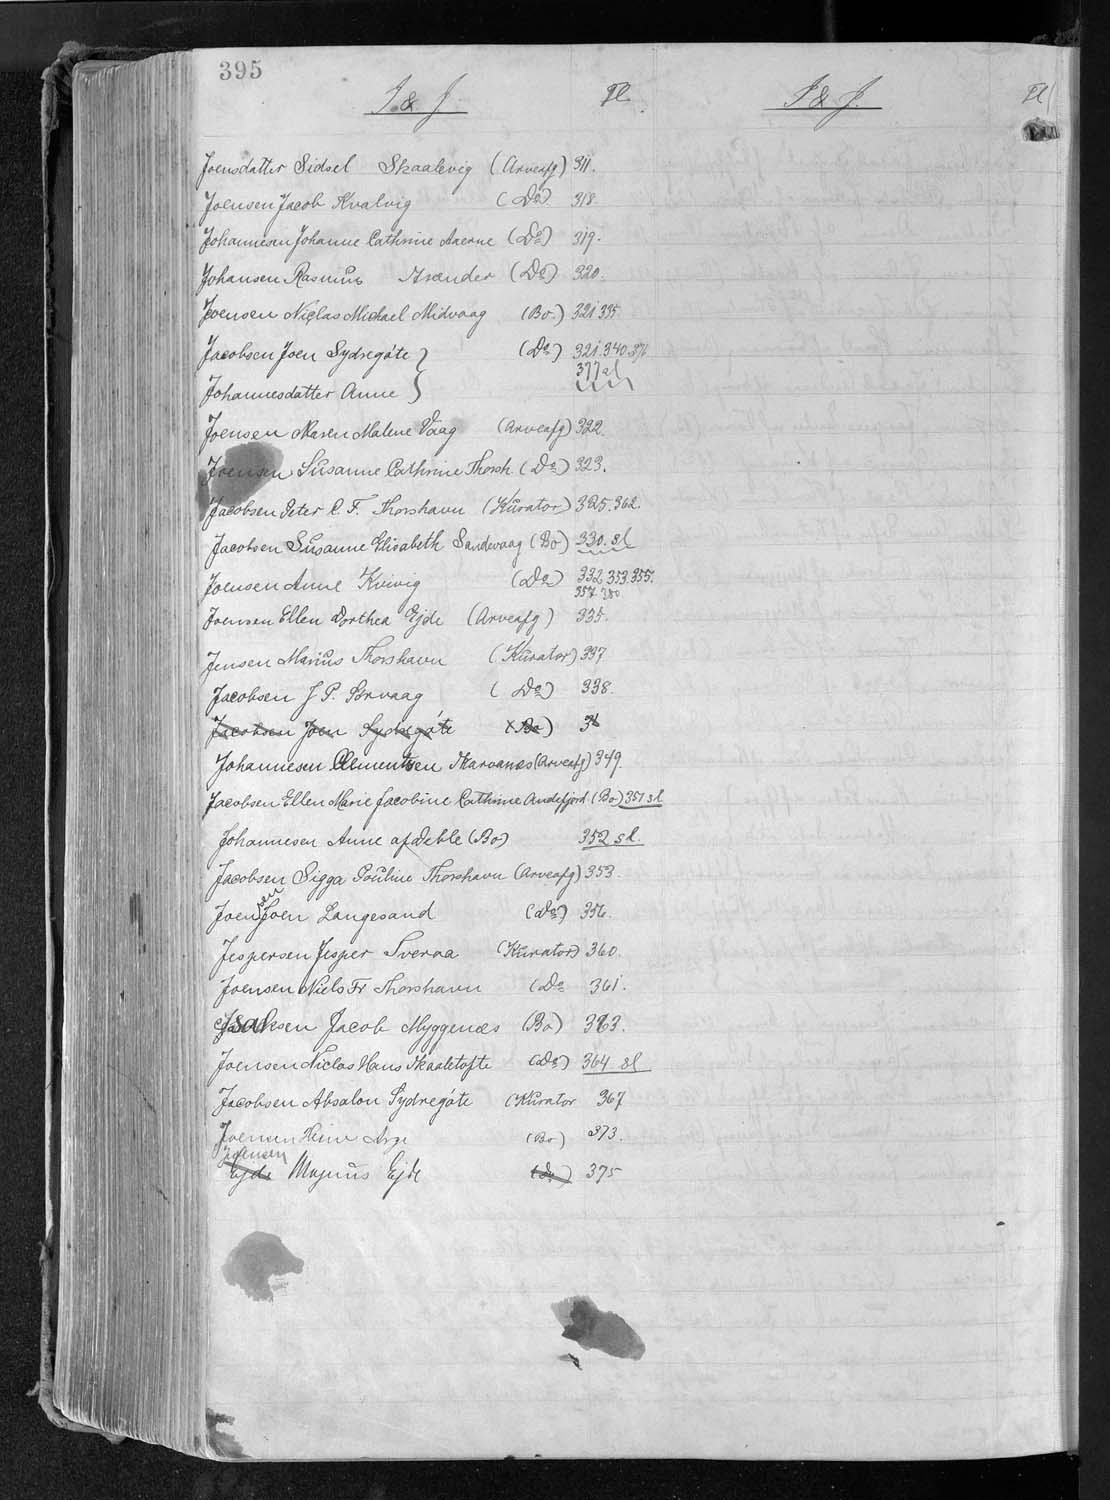 395
I & J. Fl. I & J. Fl
Joensdatter Sidsel Skaalevig (Arveafg) 311.
Joensen Jacob Kvalvig (Do) 318
Johannesen Johanne Cathrine (Do) 319.
Johansen Rasmus (Do) 320.
Joensen Niclas Michael Midvaag (Bo.) 321 335
Jacobsen Joen Sydregøte } (Do) 321.340.376
377 sl
Johannesdatter Anne }
Joensen Maren Malene Vaag (Arveafg) 322.
Joensen Susanne Cathrine Thorsh. (Do) 323.
Jacobsen Peter C. F. Thorshavn (Kurator) 325.362.
Jacobsen Susanne Elisabeth Sandevaag (Bo) 330. sl
Joensen Anne Kvivig (Do) 332, 353.355.
357 380
Joensen Ellen Dorthea Ejde (Arveafg) 335.
Jensen Marius Thorshavn (Kurator) 337
Jacobsen J P. Sørvaag (Do) 338.
Jacobsen Joen Sydregøte (Bo)
Johannesen Clementsen Skarvanes (Arveafg) 349.
Jacobsen Ellen Marie Jacobine Cathrine Andefjord (Bo) 351 sl
Johannesen Anne af Deble (Bo) 352 sl.
Jacobsen Sigga Pouline Thorshavn (Arveafg) 353.
Joensen Joen Langesand (Do) 356.
Jespersen Jesper Sveraa (Kurator) 360.
Joensen Niels Fr Thorshavn (Do 361.
Isaksen Jacob Myggenæs (Bo) 363.
Joensen Niclas Hans Skaaletofte (Do) 364 sl
Jacobsen Absalon Sydregøte (Kurator 367
Joensen Heine Arge (Bo) 373.
Joensen
Ejde Magnus Ejde (Do) 375